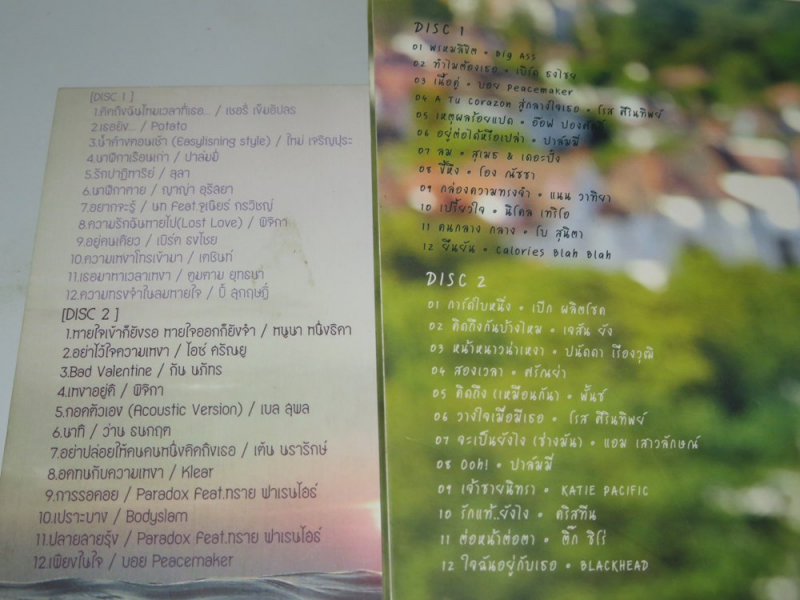 [DISC 1]
1.คิดถึงฉันไหมเวลาที่เธอ... / เชอรี่ เข็มอัปสร
2.เธอยัง... / Potato
3.น้ำค้างตอนเช้า (Easylisning style) / ใหม่ เจริญปุระ
4.นาฬิกาเรือนเก่า / ปาล์มมี่
5.รักปาฏิหาริย์ / ลุลา
6.นาฬิกาตาย / ญาญ่า อุรัสยา
7.อยากจะรู้ / นท Feat.จูเนียร์ กรวิชญ์
8.ความรักฉันหายไป(Lost Love) / พิจิกา
9.อยู่คนเดียว / เบิร์ด ธงไชย
10.ความเหงาโทรเข้ามา / เตชินท์
11.เธอมาหาเวลาเหงา / ตูมตาม ยุทธนา
12.ความทรงจำในลมหายใจ / บี้ สุกฤษฎิ์
[DISC 2]
1.หายใจเข้าก็ยังรอ หายใจออกก็ยังจำ / หนูนา หนึ่งธิดา
2.อย่าไว้ใจความเหงา / ไอซ์ ศรัณยู
3.Bad Valentine / กัน นภัทร
4.เหงาอยู่ดี / พิจิกา
5.กอดตัวเอง (Acoustic Version) / เบล สุพล
6.นาที / ว่าน ธนกฤต
7.อย่าปล่อยให้คนคนหนึ่งคิดถึงเธอ / เต้น นรารักษ์
8.อดทนกับความเหงา / Klear
9.การรอคอย / Paradox Feat.ทราย ฟาเรนไฮธ์
10.เปราะบาง / Bodyslam
11.ปลายสายรุ้ง / Paradox Feat.ทราย ฟาเรนไฮธ์
12.เพียงในใจ / บอย Peacemaker
DISC 1
01 พรหมลิขิต • Big Ass
02 ทำไมต้องเธอ • เบิร์ด ธงไชย
03 เนื้อคู่ • บอย Peacemaker
04 A Tu Corazon สู่กลางใจเธอ • โรส ศิรินทิพย์
05 เหตุผลร้อยแปด • อ๊อฟ ปองศักดิ์
06 อยู่ต่อได้หรือเปล่า • ปาล์มมี่
07 ลม • สุเมธ & เดอะปั๋ง
08 ขี้หึง • โอง ณัชชา
09 กล่องความทรงจำ • แนน วาทิยา
10 เปรี้ยวใจ • นิโคล เทริโอ
11 คนกลาง กลาง • โบ สุนิตา
12 ยืนยัน • Calories Blah Blah
DISC 2
01 การ์ดใบหนึ่ง • เป๊ก ผลิตโชค
02 คิดถึงกันบ้างไหม • เจสัน ยัง
03 หน้าหนาวน่าเหงา • ปนัดดา เรืองวุฒิ
04 สองเวลา • ศรัณย่า
05 คิดถึง (เหมือนกัน) • พั้นช์
06 วางใจเมื่อมีเธอ • โรส ศิรินทิพย์
07 จะเป็นยังไง (ช่างมัน) • แอม เสาวลักษณ์
08 Ooh! • ปาล์มมี่
09 เจ้าชายนิทรา • KATIE PACIFIC
10 รักแท้..ยังไง • คริสทีน
11 ต่อหน้าต่อตา • ติ๊ก ชิโร่
12 ใจฉันอยู่กับเธอ • BLACKHEAD